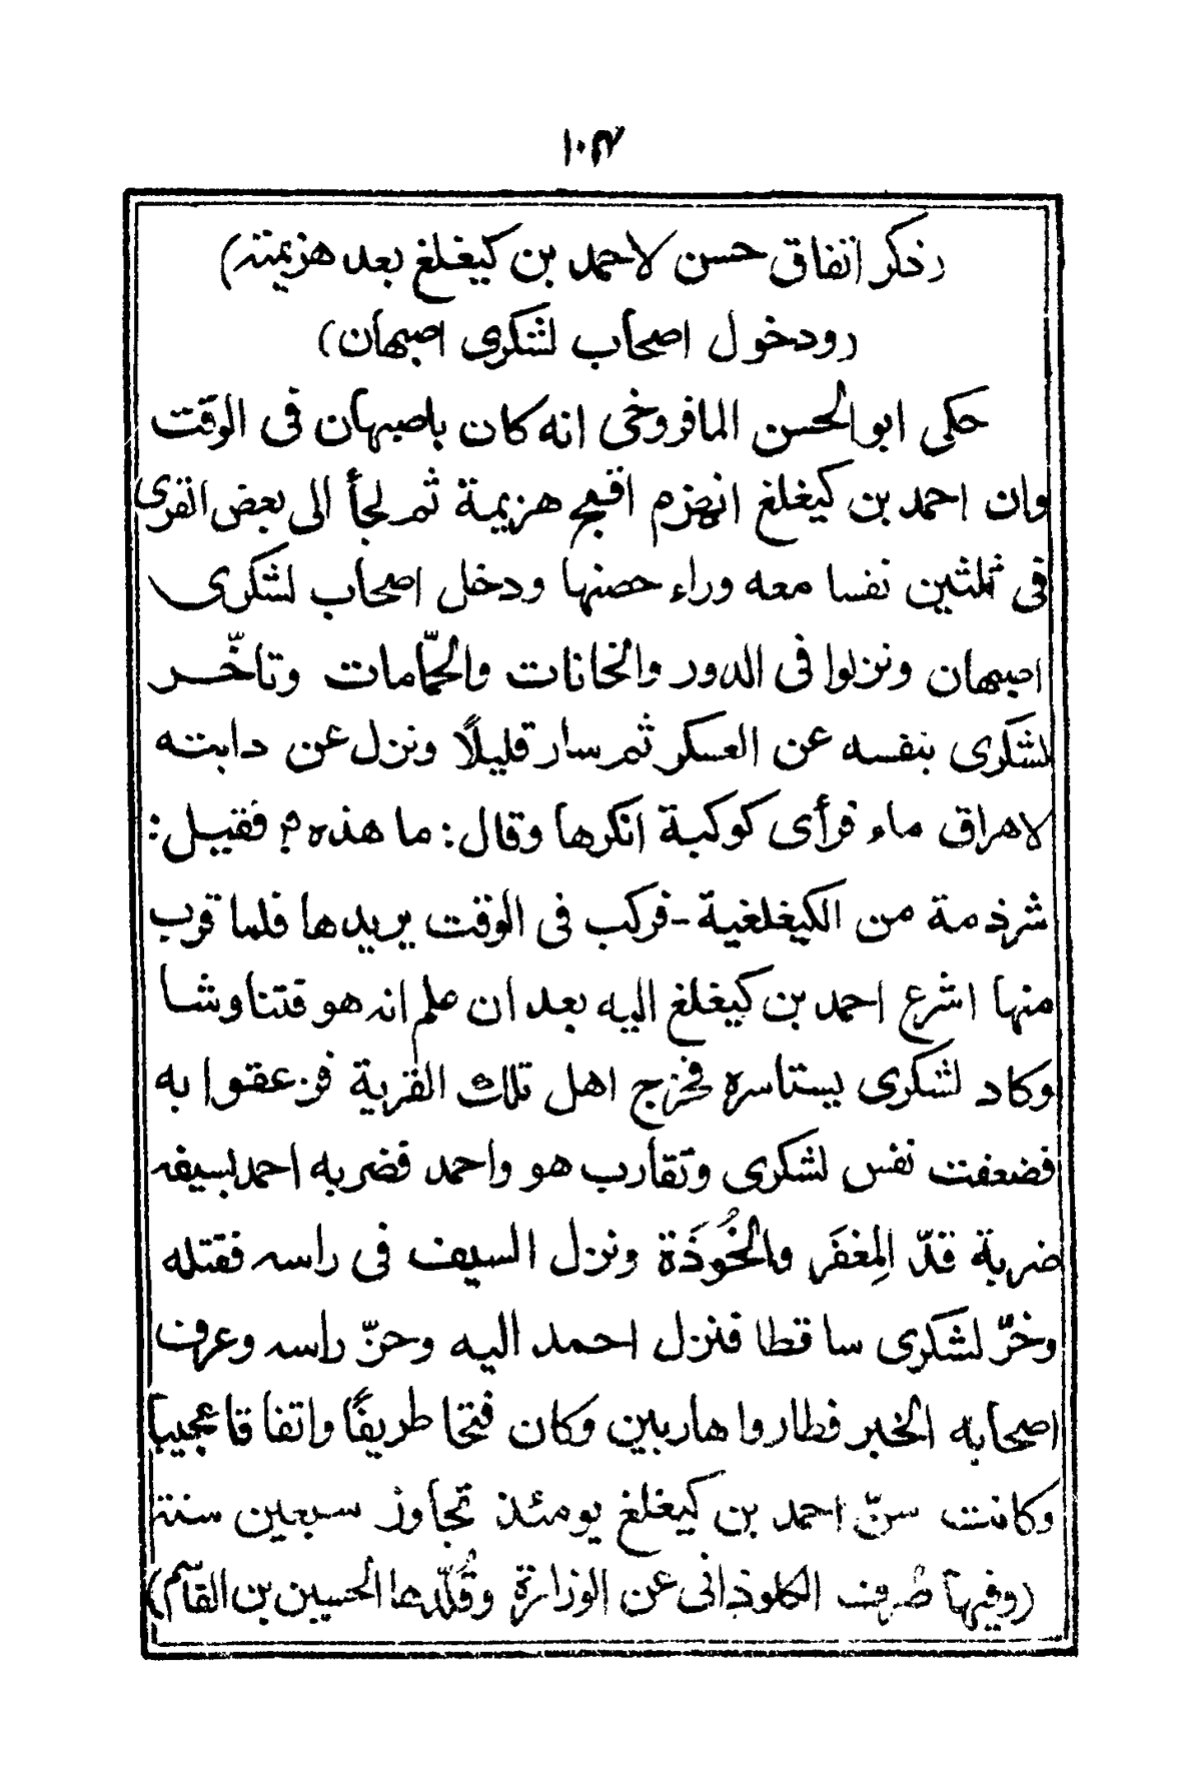 ١٠٣
(ذكر اتفاق حسن لاحمد بن كيغلغ بعد هزيمته)
(ودخول اصحاب لشكرى اصبهان)
حكى ابو الحسن المافروخى انه كان باصبهان فى الوقت
وان احمد بن كيغلغ انهزم اقبح هزيمة ثم لجأ الى بعض القرى
فى ثلثين نفسا معه وراء حصنها ودخل اصحاب لشكرى
اصبهان ونزلوا فى الدور والخانات والحمّامات وتاخّر
لشكرى بنفسه عن العسكر ثم سار قليلًا ونزل عن دابته
لاهراق ماء فرأى كوكبة انكرها وقال: ما هذه؟ فقيل:
شرذمة من الكيغلغية-فركب فى الوقت يريدها فلما قرب
منها اشرع احمد بن كيغلغ اليه بعد ان علم انه هو فتناوشا
وكاد لشكرى يستاسره فخرج اهل تلك القرية فزعقوا به
فضعفت نفس لشكرى وتقارب هو واحمد فضربه احمد بسيفه
ضربة قدّ المِغفَر والخُوذَة ونزل السيف فى راسه فقتله
وخرّ لشكرى ساقطا فنزل احمد اليه وحزّ راسه وعرف
اصحابه الخبر فطاروا هاربين وكان فتحا طريفًا واتفاقا عجيبا
وكانت سنّ احمد بن كيغلغ يومئذ تجاوز سبعين سنة
(وفيها صُرف الكلوذانى عن الوزارة وقُلّدها الحسين بن القاسم)